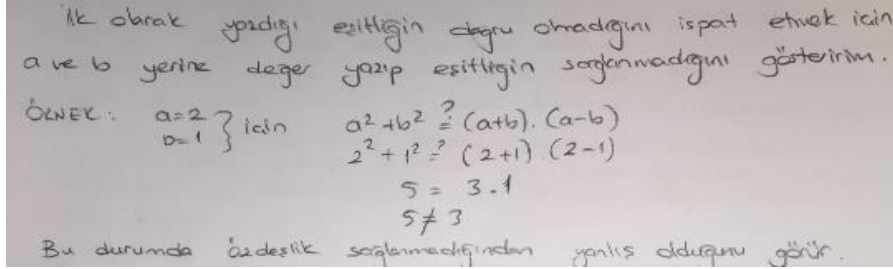 ilk olarak yazdığı eşitliğin doğru olmadığını ispat etmek için
a ve b yerine değer yazıp eşitliğin sağlanmadığını gösteririm.
ÖRNEK: a=2 } için a² + b² ≟ (a+b). (a-b)
b=1
2² + 1² ≟ (2+1) (2-1)
5 = 3.1
5 ≠ 3
Bu durumda özdeşlik sağlanmadığından yanlış olduğunu görür.